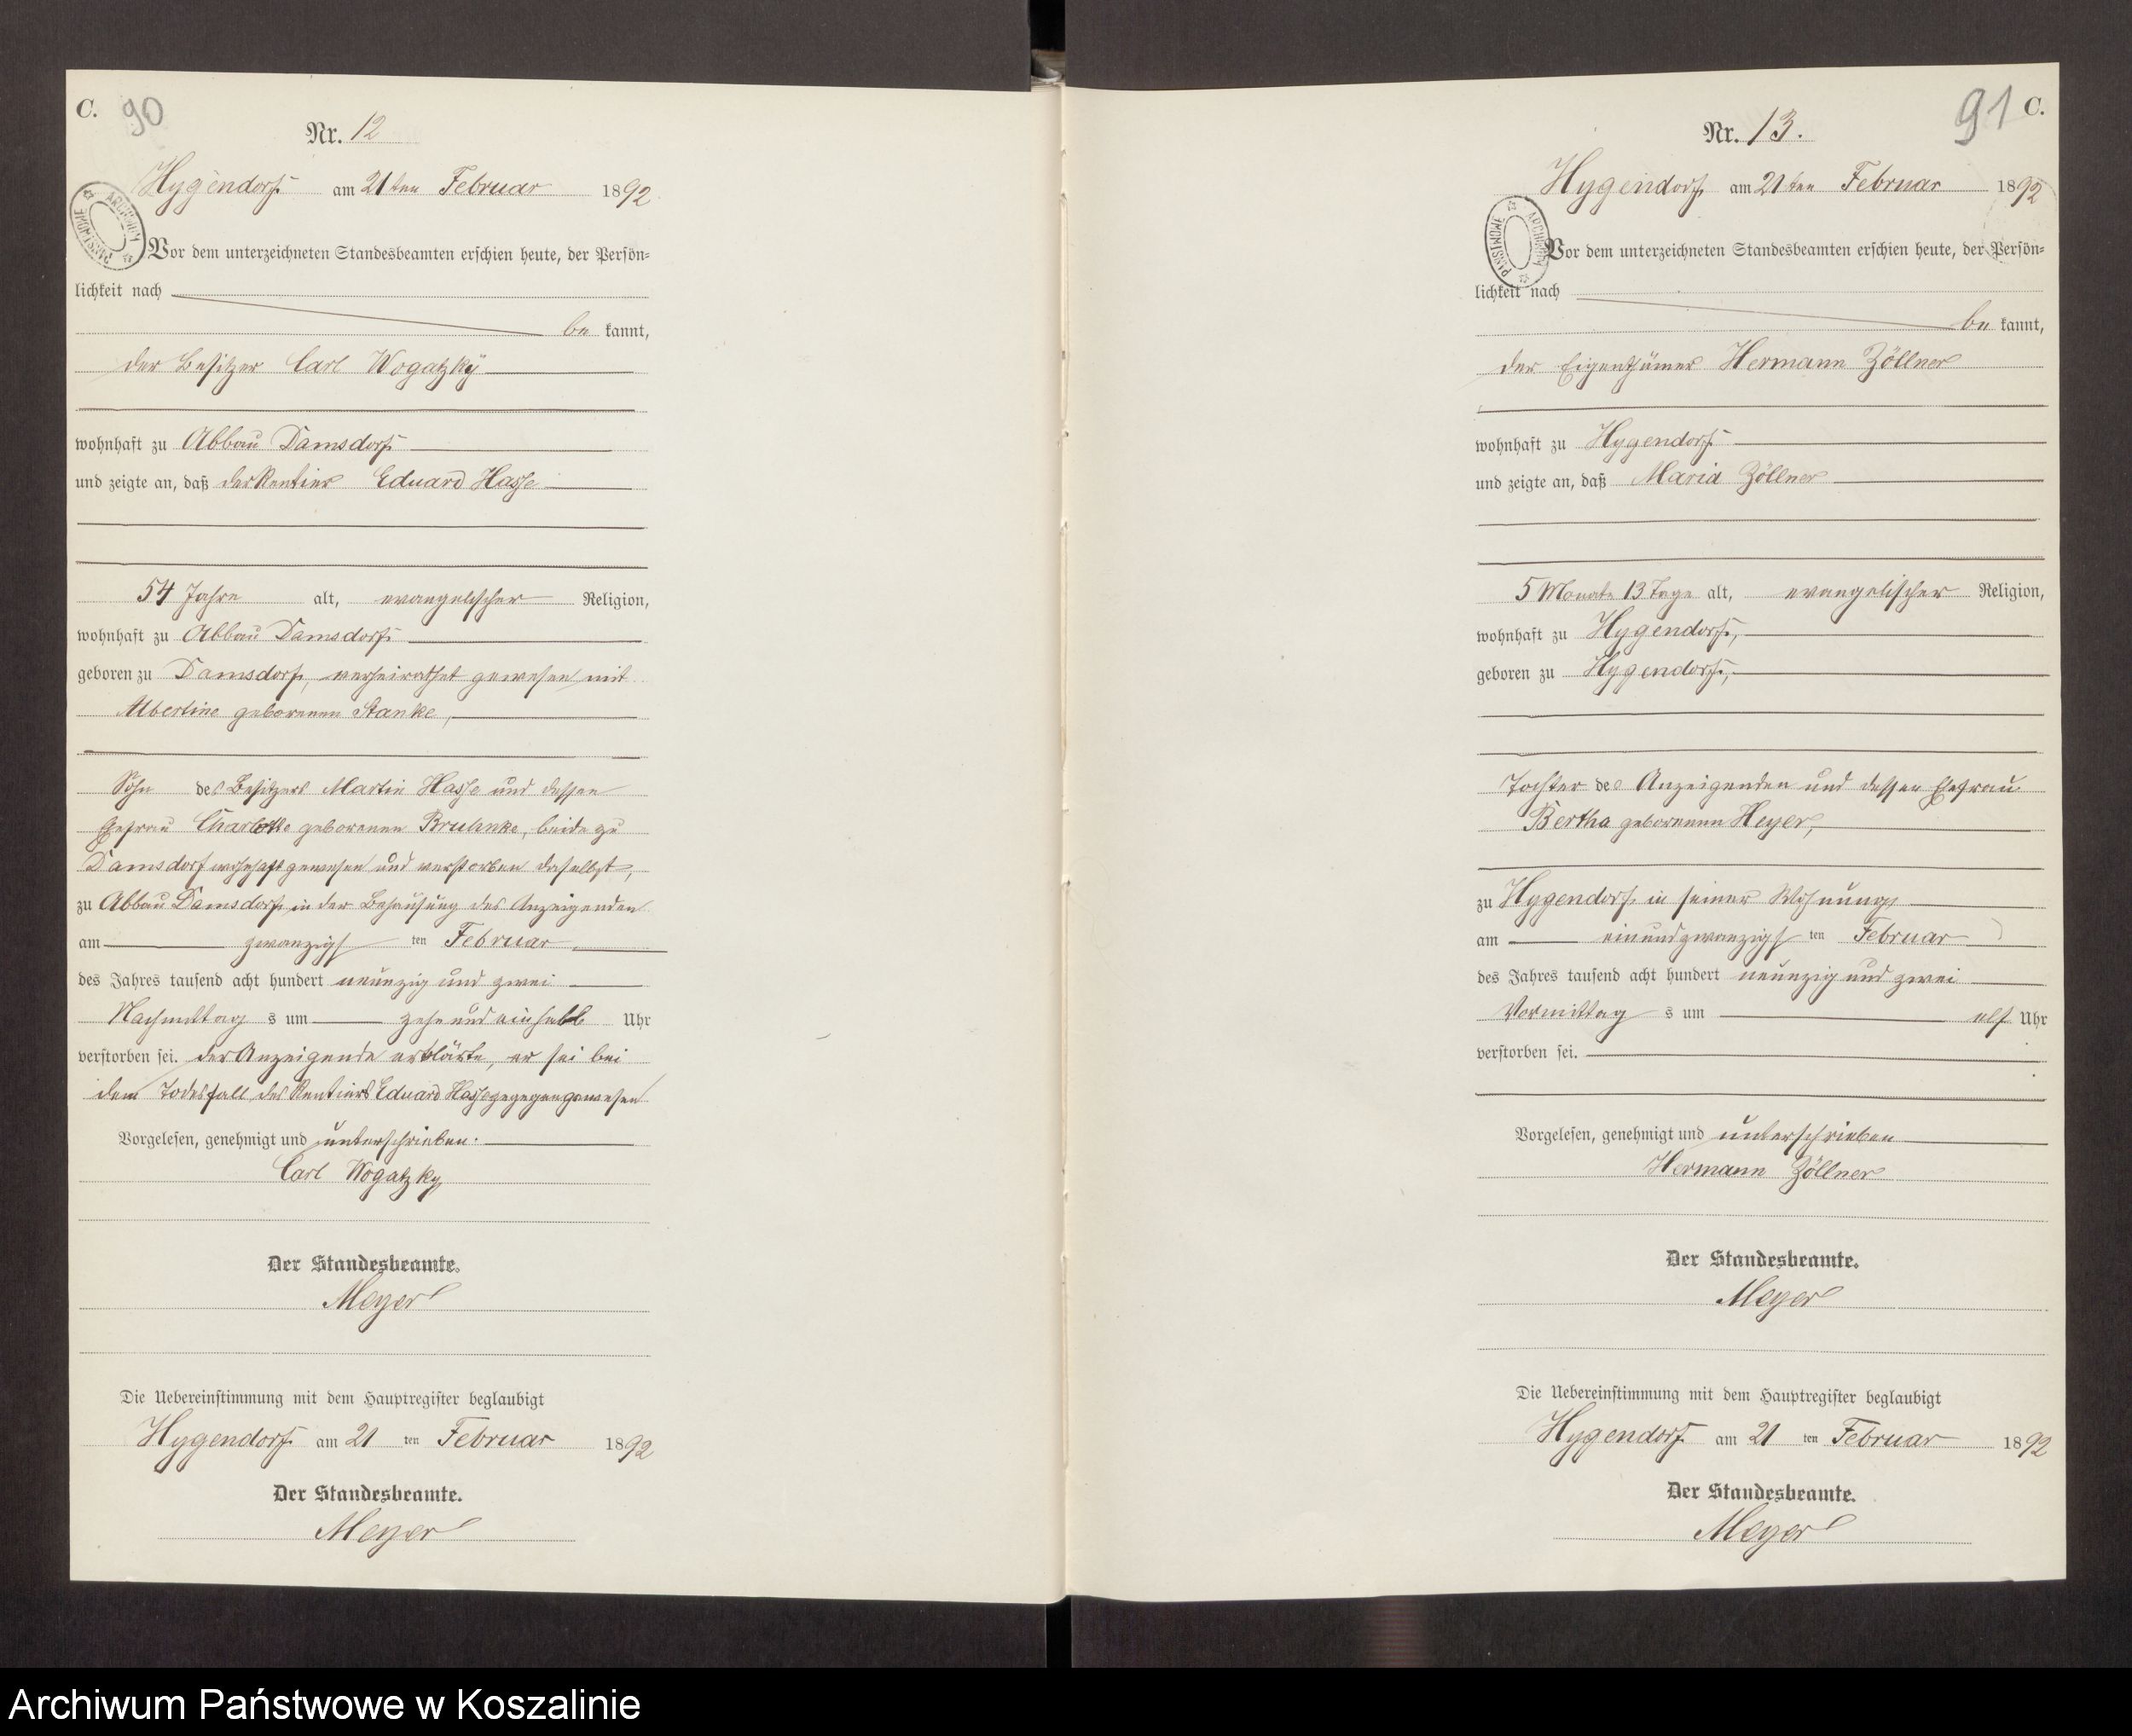 C. 90
Nr. 12
Hygendorf am 21ten Februar 1892
ARCHIWUM PAŃSTWOWE
Vor dem unterzeichneten Standesbeamten erschien heute, der Persön=
lichkeit nach
be kannt,
der Besitzer Carl Wogatzky
wohnhaft zu Abbau Damsdorf
und zeigte an, daß der Rentier Eduard Hasse
54 Jahre alt, evangelischer Religion,
wohnhaft zu Abbau Damsdorf
geboren zu Damsdorf, verheirathet gewesen mit
Albertine geborenen Stanke,
Sohn des Besitzers Martin Hasse und dessen
Ehefrau Charlotte geborenen Bruhnke, beide zu
Damsdorf wohnhaft gewesen und verstorben daselbst,
zu Abbau Damsdorf in der Behausung des Anzeigenden
am zwanzigsten Februar
des Jahres tausend acht hundert neunzig und zwei
Nachmittag s um zehn und ein halb Uhr
verstorben sei. der Anzeigende erklärte, er sei bei
dem Todesfall des Rentiers Eduard Hasse zugegen gewesen
Vorgelesen, genehmigt und unterschrieben.
Carl Wogatzky
Der Standesbeamte.
Meyer
Die Uebereinstimmung mit dem Hauptregister beglaubigt
Hygendorf am 21 ten Februar 1892
Der Standesbeamte.
Meyer
91 C.
Nr. 13.
Hygendorf am 21ten Februar 1892
ARCHIWUM PAŃSTWOWE
Vor dem unterzeichneten Standesbeamten erschien heute, der Persön=
lichkeit nach
be kannt,
der Eigenthümer Hermann Zöllner
wohnhaft zu Hygendorf
und zeigte an, daß Maria Zöllner
5 Monate 13 Tage alt, evangelischer Religion,
wohnhaft zu Hygendorf,
geboren zu Hygendorf,
Tochter des Anzeigenden und dessen Ehefrau
Bertha geborenen Heyer,
zu Hygendorf in seiner Wohnung
am einundzwanzigsten Februar
des Jahres tausend acht hundert neunzig und zwei
Vormittag s um elf Uhr
verstorben sei.
Vorgelesen, genehmigt und unterschrieben
Hermann Zöllner
Der Standesbeamte.
Meyer
Die Uebereinstimmung mit dem Hauptregister beglaubigt
Hygendorf am 21 ten Februar 1892
Der Standesbeamte.
Meyer
Archiwum Państwowe w Koszalinie